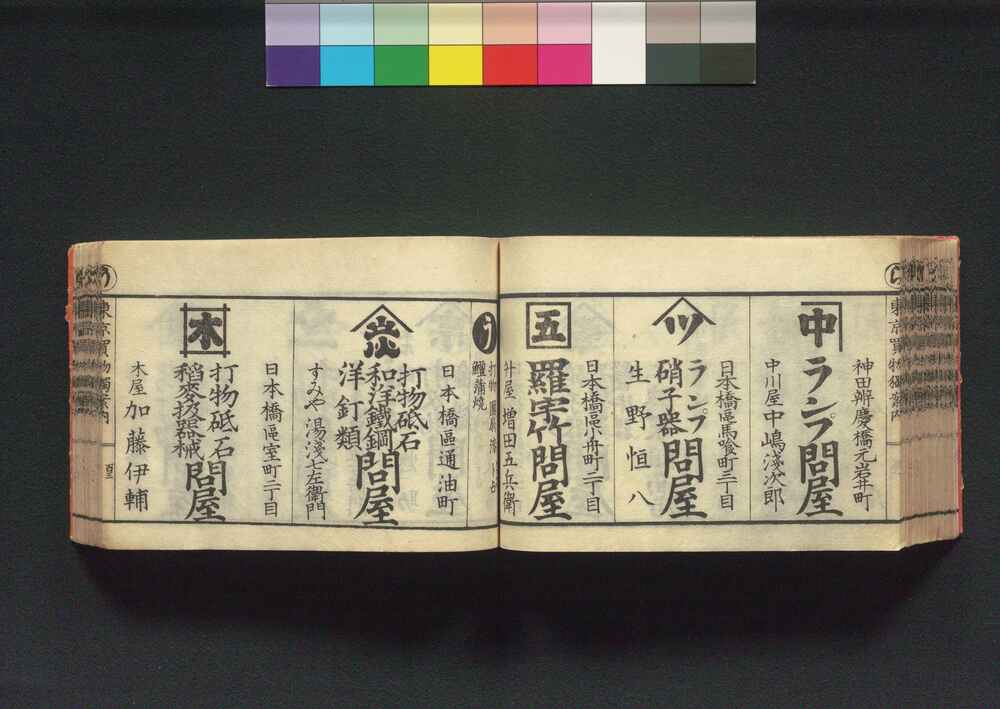 東京買物獨案内
神田辨慶橋元岩井町
中
ランプ問屋
中川屋中嶋淺次郎
日本橋區馬喰町三丁目
ツ
ランプ
硝子器
問屋
生野恒八
日本橋區小舟町二丁目
五
羅宇竹問屋
竹屋増田五兵衛
う
鰻蒲焼
日本橋區通油町
炭
打物砥石
和洋鐵鋼
洋釘類
問屋
すみや湯淺七左衛門
日本橋區室町二丁目
木
打物砥石
稻麥扱器械
問屋
木屋加藤伊輔
う
東京買物獨案内